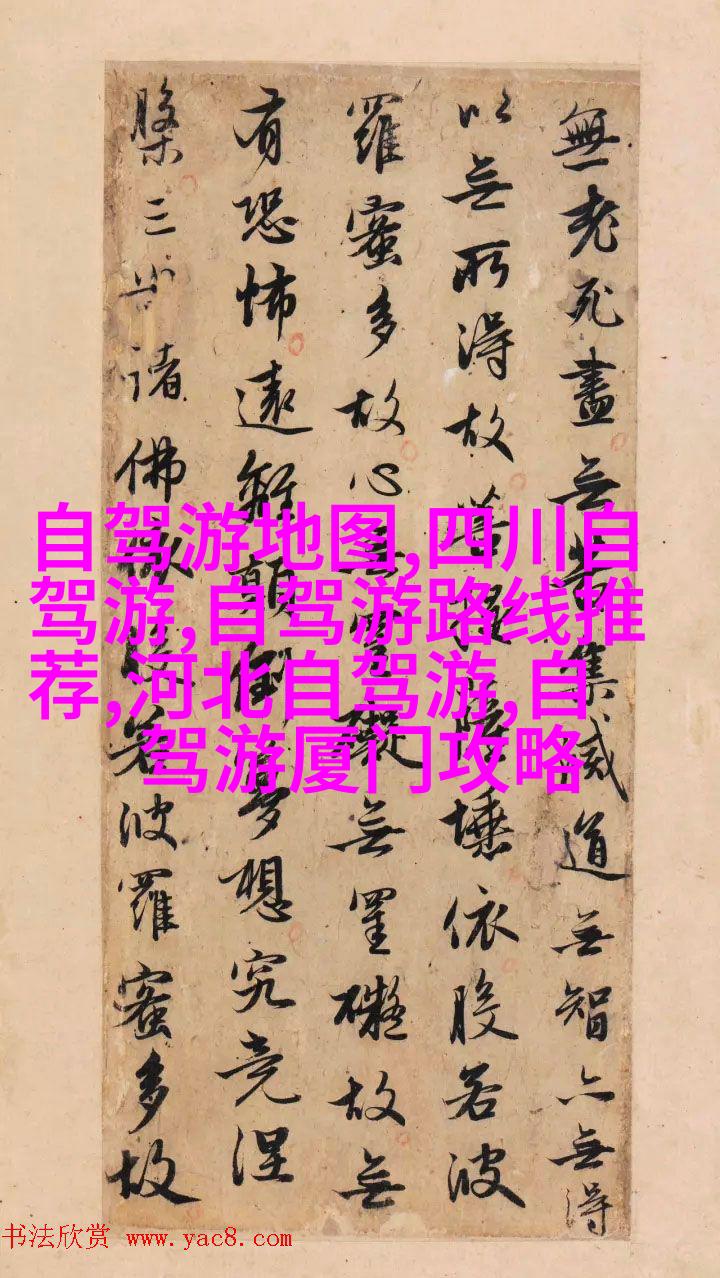 無老死盡無苦集滅道無智亦無得
以無所得故菩提薩埵依般若波
羅蜜多故心無罣礙無罣礙故無
有恐怖遠離顛倒夢想究竟涅
槃三世諸佛依般若波羅蜜多故
自驾游地图,四川自
驾游,自驾游路线推
荐,河北自驾游,自
驾游厦门攻略
书法欣赏 www.yac8.com